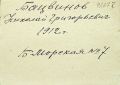 Тацвинов
Николай Григорьевич
1912 г.
Б. Морская №7